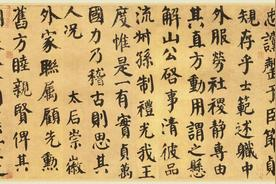 規存乎士範述職中
外服勞社稷靜專由
其直方動用謂之懸
解山公啓事清彼品
流叔孫制禮光我王
度惟是一有實貞萬
國力乃稽古則思其
人況 太后崇徽
外家聯屬顧先勳
舊方睦親賢俾其